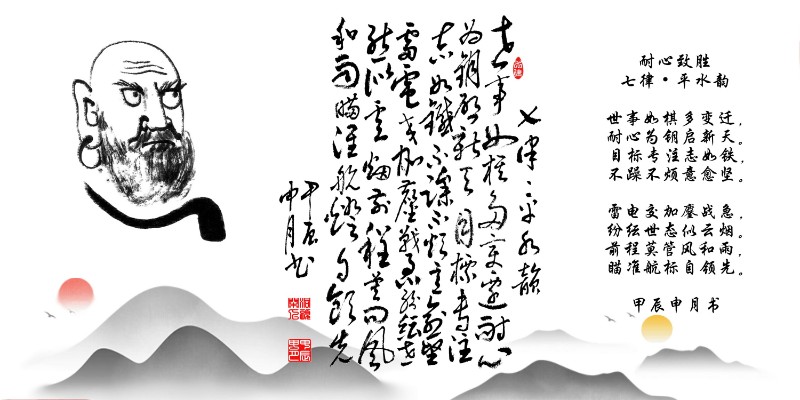 七律·平水韵
世事如棋多变迁耐心
为钥启新天目标专注
志如铁不躁不烦意愈坚
雷电交加鏖战急纷纭世
态似云烟前程莫问风
和雨瞄准航标自领先
甲辰
申月书
耐心致胜
七律·平水韵
世事如棋多变迁，
耐心为钥启新天。
目标专注志如铁，
不躁不烦意愈坚。
雷电交加鏖战急，
纷纭世态似云烟。
前程莫管风和雨，
瞄准航标自领先。
甲辰申月书